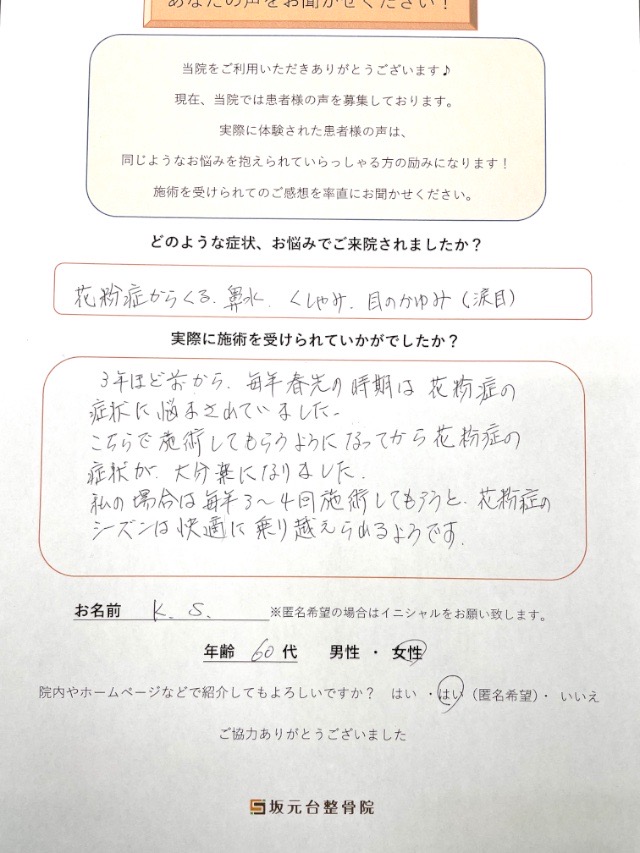 あなたの声をお聞かせください！
当院をご利用いただきありがとうございます♪
現在、当院では患者様の声を募集しております。
実際に体験された患者様の声は、
同じようなお悩みを抱えられていらっしゃる方の励みになります！
施術を受けられてのご感想を率直にお聞かせください。
どのような症状、お悩みでご来院されましたか？
花粉症からくる、鼻水、くしゃみ、目のかゆみ（涙目）
実際に施術を受けられていかがでしたか？
3年ほど前から、毎年春先の時期は花粉症の
症状に悩まされていました。
こちらで施術してもらうようになってから花粉症の
症状が、大分楽になりました。
私の場合は毎年3〜4回施術してもらうと、花粉症の
シーズンは快適に乗り越えられるようです。
お名前 K. S. ※匿名希望の場合はイニシャルをお願い致します。
年齢 60代 男性 ・ 女性
院内やホームページなどで紹介してもよろしいですか？ はい ・はい（匿名希望）・ いいえ
ご協力ありがとうございました
坂元台整骨院